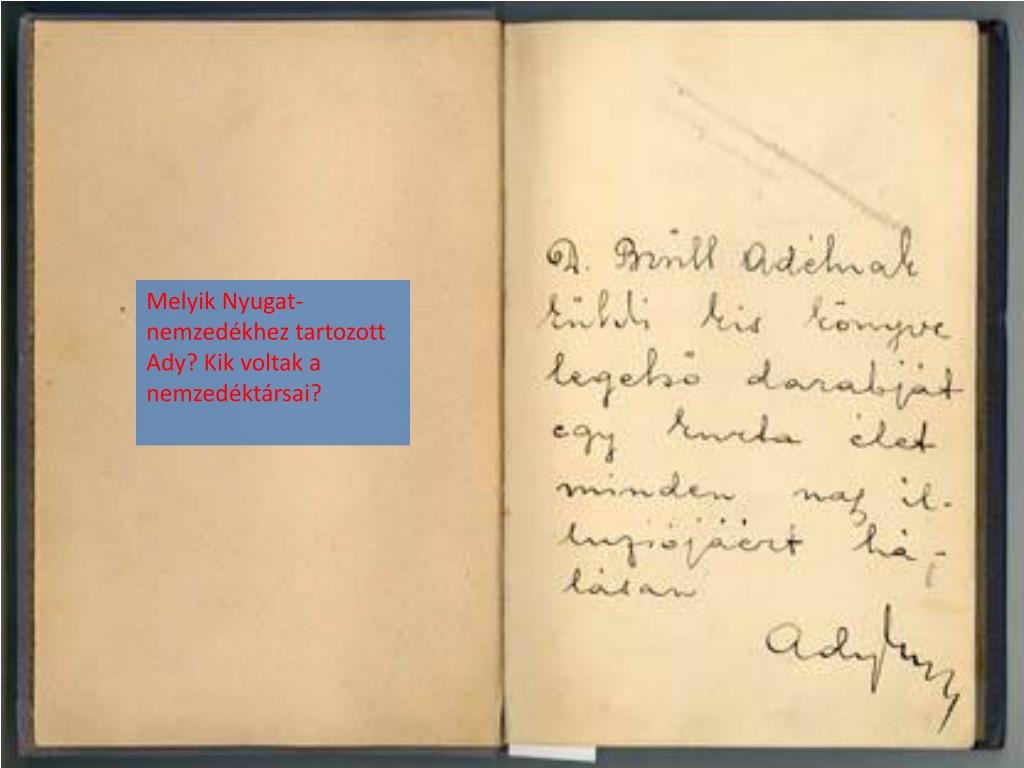 Melyik Nyugat-
nemzedékhez tartozott
Ady? Kik voltak a
nemzedéktársai?
D. Brüll Adélnak
küldi kis könyve
legelső darabját
egy kurta élet
minden nagy il-
luziójáért há-
lásan
Ady Endre